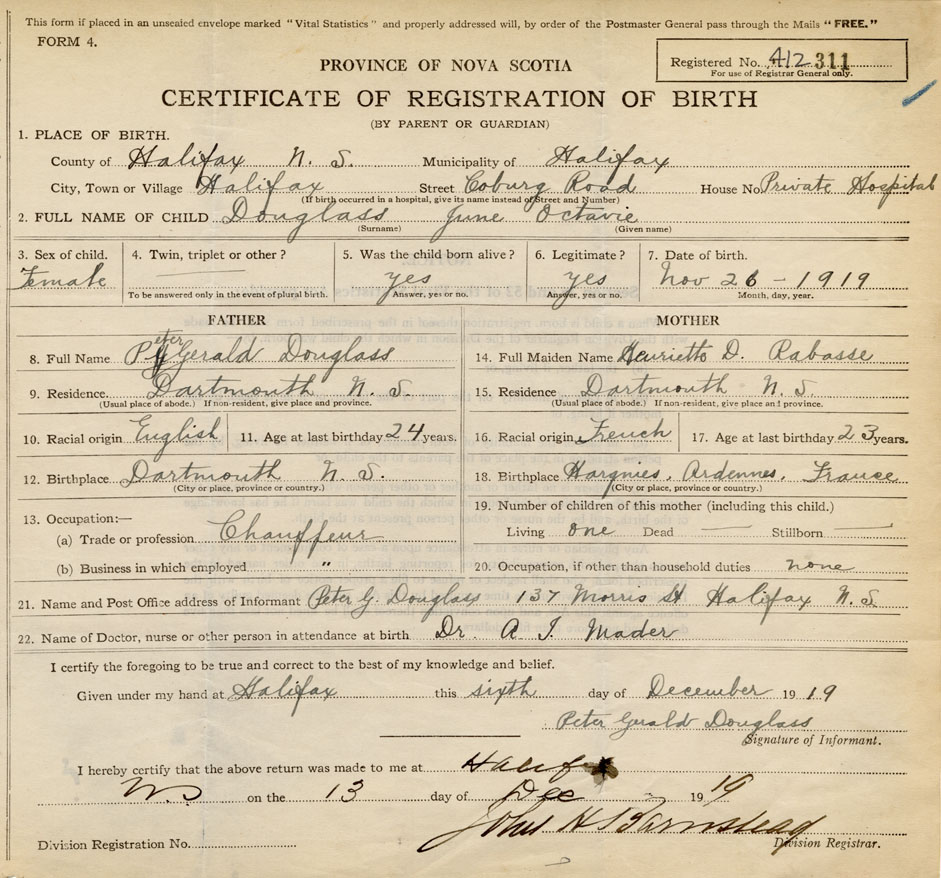 This form if placed in an unsealed envelope marked "Vital Statistics" and properly addressed will, by order of the Postmaster General pass through the Mails "FREE."
FORM 4.
Registered No. 412 311
For use of Registrar General only.
PROVINCE OF NOVA SCOTIA
CERTIFICATE OF REGISTRATION OF BIRTH
(BY PARENT OR GUARDIAN)
1. PLACE OF BIRTH.
County of Halifax N. S. Municipality of Halifax
City, Town or Village Halifax Street Coburg Road House No Private Hospital
(If birth occurred in a hospital, give its name instead of Street and Number)
2. FULL NAME OF CHILD Douglass June Octavie
(Surname) (Given name)
3. Sex of child. 4. Twin, triplet or other? 5. Was the child born alive? 6. Legitimate? 7. Date of birth.
Female yes yes Nov 26 - 1919
To be answered only in the event of plural birth. Answer, yes or no. Answer, yes or no. Month, day, year.
FATHER MOTHER
8. Full Name Peter Gerald Douglass 14. Full Maiden Name Henrietta D. Rabasse
9. Residence. Dartmouth N. S. 15. Residence Dartmouth N. S.
(Usual place of abode.) If non-resident, give place and province. (Usual place of abode.) If non-resident, give place and province.
10. Racial origin English 11. Age at last birthday 24 years. 16. Racial origin French 17. Age at last birthday 23 years.
12. Birthplace Dartmouth N. S. 18. Birthplace Hargnies, Ardennes, France
(City or place, province or country.) (City or place, province or country.)
13. Occupation:— 19. Number of children of this mother (including this child.)
(a) Trade or profession Chauffeur Living one Dead — Stillborn
(b) Business in which employed " 20. Occupation, if other than household duties none
21. Name and Post Office address of Informant Peter G. Douglass 137 Morris St Halifax N. S.
22. Name of Doctor, nurse or other person in attendance at birth Dr. A. I. Mader
I certify the foregoing to be true and correct to the best of my knowledge and belief.
Given under my hand at Halifax this sixth day of December 1919
Peter Gerald Douglass
Signature of Informant.
I hereby certify that the above return was made to me at Halifax
N.S on the 13 day of Dec 1919
John H Barnstead
Division Registration No. Division Registrar.